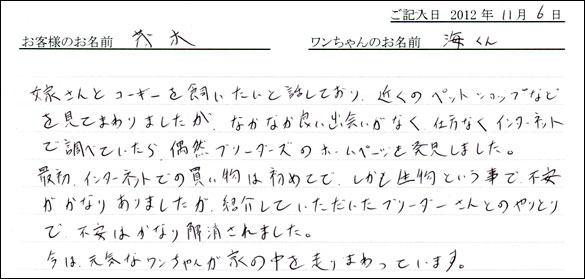 ご記入日 2012 年 11 月 6 日
お客様のお名前 茂木 ワンちゃんのお名前 海くん
嫁さんとコーギーを飼いたいと話しており、近くのペットショップなど
を見てまわりましたが、なかなか良い出会いがなく、仕方なくインターネット
で調べていたら、偶然ブリーダーズのホームページを発見しました。
最初、インターネットでの買い物は初めてで、しかも生物という事で、不安
がかなりありましたが、紹介していただいたブリーダーさんとのやりとり
で、不安はかなり解消されました。
今は、元気なワンちゃんが家の中を走りまわっています。